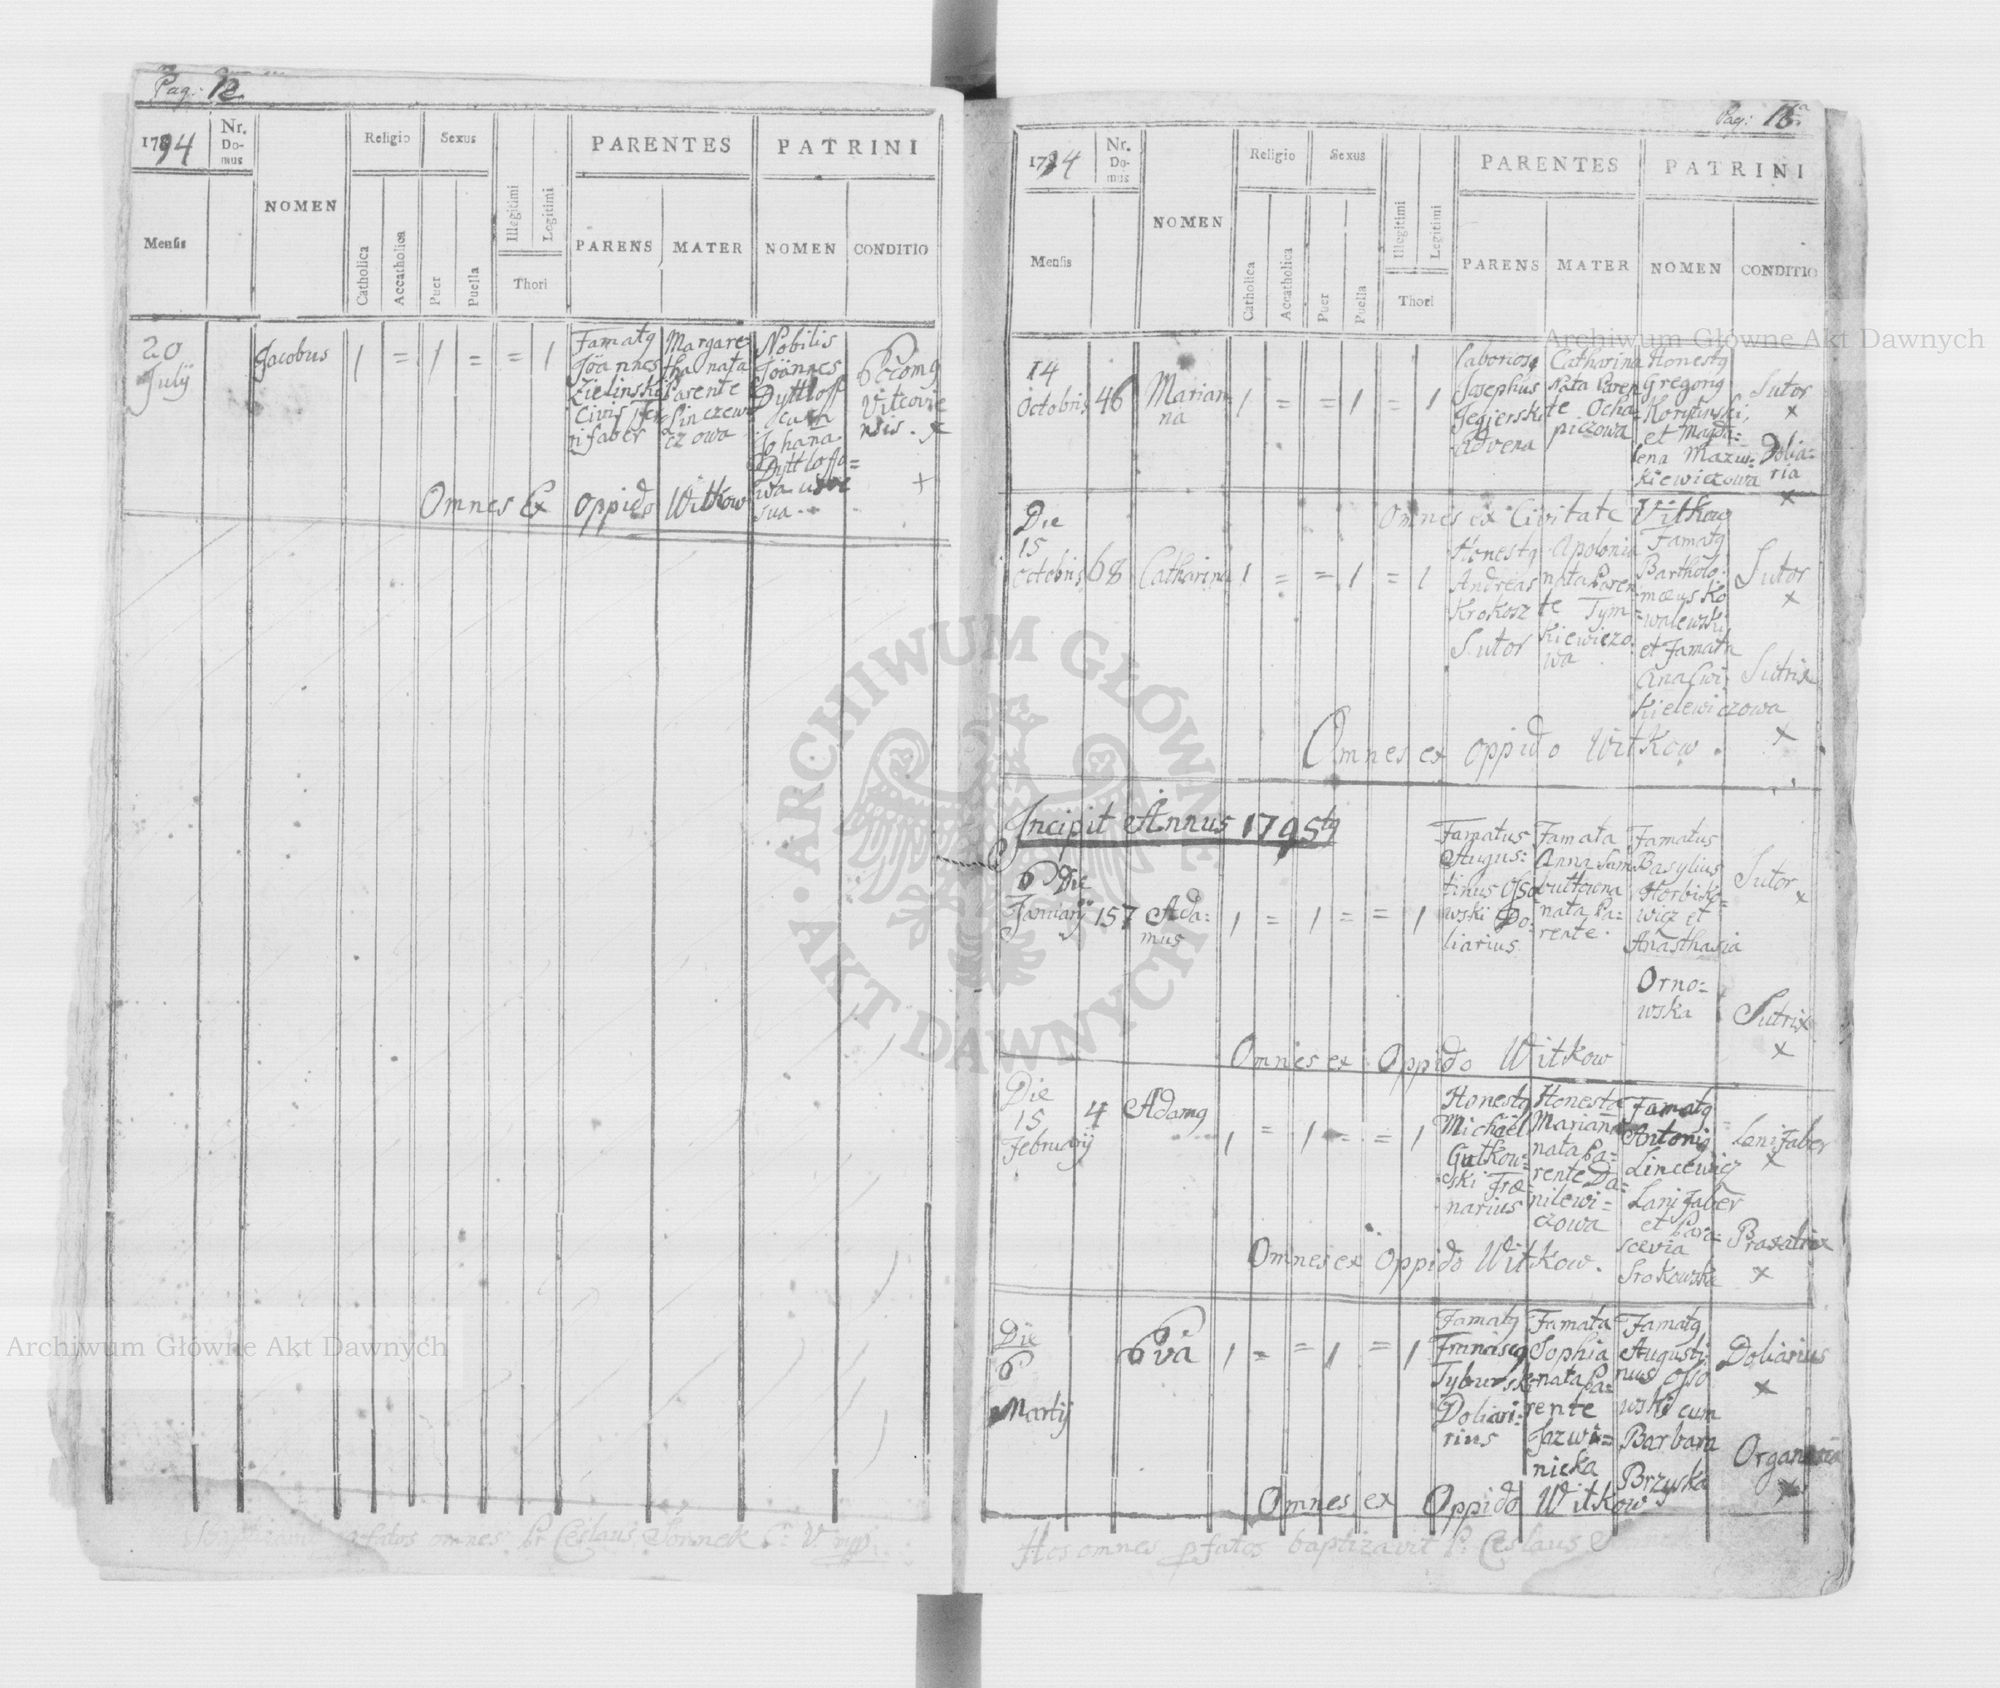 Pag: 12
1794
Nr. Do-mus
NOMEN
Religio
Sexus
PARENTES
PATRINI
Mensis
Catholica
Accatholica
Puer
Puella
Illegitimi
Legitimi
Thori
PARENS
MATER
NOMEN
CONDITIO
20
Julij
Jacobus
1 = 1 = = 1
Famatq
Joannes
Zielinski
Civis Fer
rifaber
Margare=
tha nata
Parente
Linczew
czowa
Nobilis
Joännes
Dyttloff
cum
Johana
Dyttloffo=
wa uxore
sua
Oeconq
Vitcovie
nsis. x
+
Omnes Ex oppido Witkow
omnes Pr Ceslaus
Pag: 13
1794
Nr. Do-mus
NOMEN
Religio
Sexus
PARENTES
PATRINI
Mensis
Catholica
Accatholica
Puer
Puella
Illegitimi
Legitimi
Thori
PARENS
MATER
NOMEN
CONDITIO
14
Octobris
46
Marian
na
1 = = 1 = 1
Laboriosq
Josephus
Jegierski
advena
Catharina
Nata Paren
te Ocha=
piczowa
Honestq
Gregorig
Korytinski
et Magda=
lena Mazur=
Kiewiczowa
Sutor
x
Dolia=
ria
x
Omnes ex Civitate Vitkow
Die
15
octobris
68
Catharina
1 = = 1 = 1
Honestq
Andreas
Krokosz
Sutor
Apolonia
nata Paren
te Tym=
Kiewiczo
wa
Famatq
Bartholo
mæus Ko
walewski
et Famata
Ana Cwi
Kielewiczowa
Sutor
x
Sutrix
x
Omnes ex oppido Witkow.
Incipit Annus 1795tq
6 Die
Januarij
157
Ada=
mus
1 = 1 = = 1
Famatus
Augus=
tinus Osso
wski Do=
liarius
Famata
Anna Sam
bultowna
nata Pa=
rente.
Famatus
Basylius
Horbiko=
wicz et
Anasthasia
Orno=
wska
Sutor
x
Sutrix
x
Omnes ex Oppido Witkow
Die
15
Februarij
4
Adamq
1 = 1 = = 1
Honestq
Michael
Gutkow=
ski Fræ
narius
Honesta
Mariana
nata Pa=
rente Da=
nilewi=
czowa
Famatq
Antonig
Lincewicz
Lanifaber
et Para=
scevia
Srokowska
Lanifaber
x
Braxatrix
x
Omnes ex oppido Witkow.
Die
6
Martij
Eva
1 = = 1 = 1
Famatq
Franciscq
Tyburski
Doliari=
rius
Famata
Sophia
nata Pa=
rente
Jazwi=
nicka
Famatq
Augusti
nus Osso
wski cum
Barbara
Brzyska
Doliarius
x
Organaria
x
Omnes ex Oppido Witkow
Hos omnes pfatos baptizavit Pr Ceslaus
Archiwum Główne Akt Dawnych
Archiwum Główne Akt Dawnych
ARCHIWUM GŁÓWNE
AKT DAWNYCH